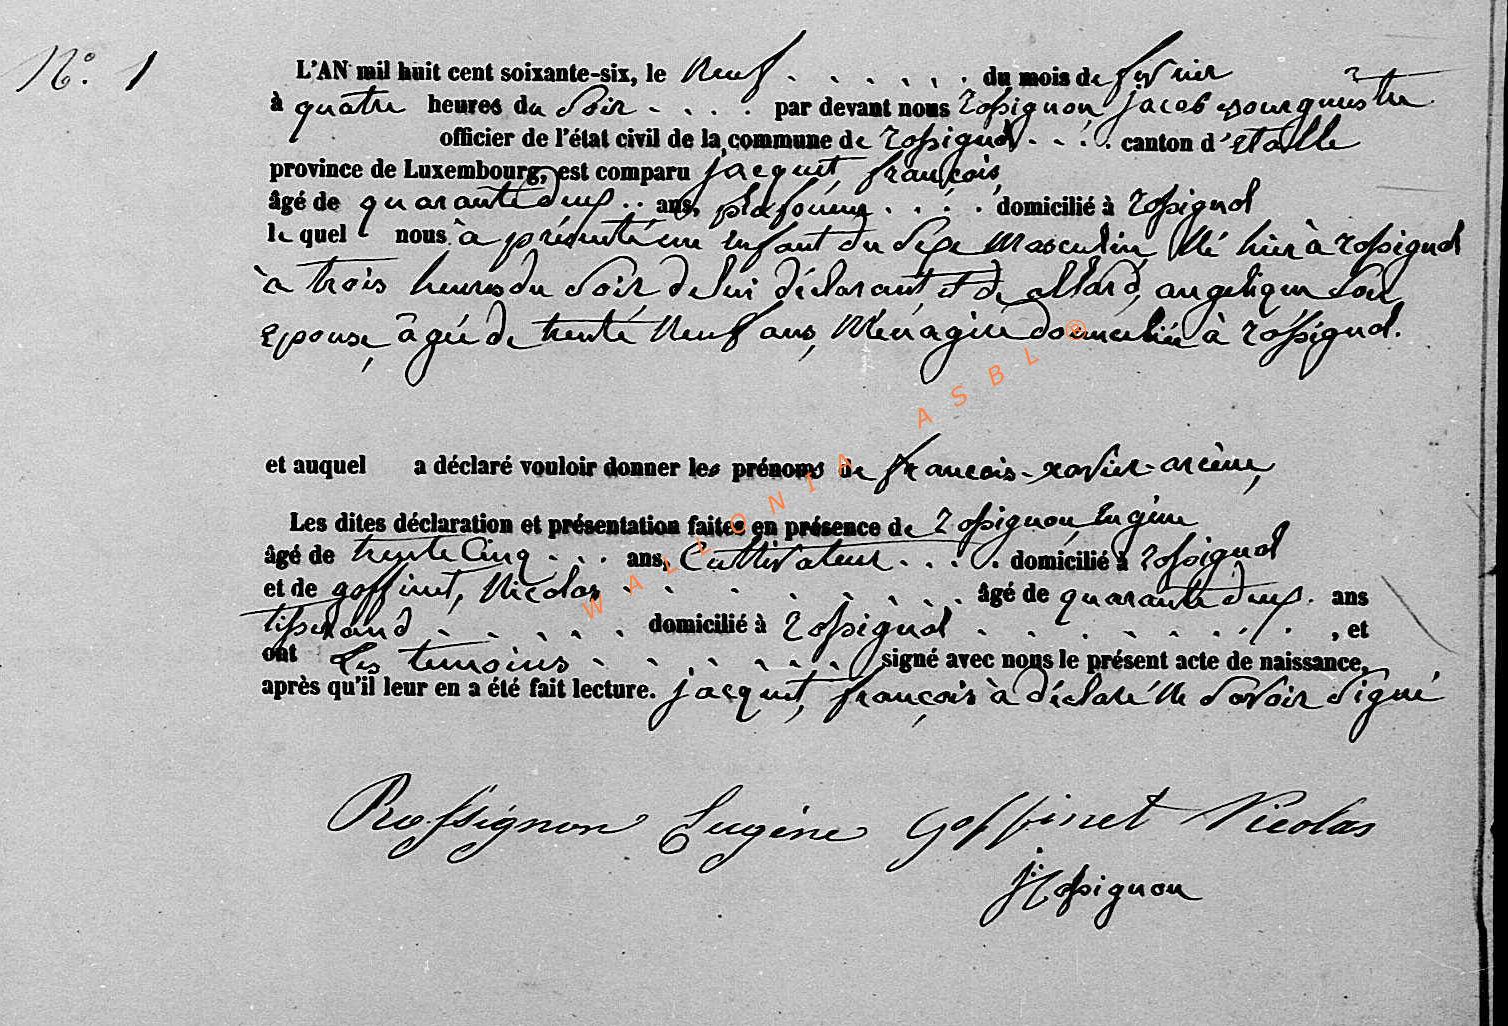 N.° 1
L'AN mil huit cent soixante-six, le Neuf . . . . . . du mois de fevrier
à quatre heures du Soir . . . . par devant nous Rossignon, jacob Bourguestre
officier de l'état civil de la commune de Rossignol . . . . canton d'Etalle
province de Luxembourg, est comparu jacquet françois,
âgé de quarante deux . . ans, plafoneur . . . . domicilié à Rossignol
le quel nous à présenté un Enfant du Sexe Masculin, Né hier à Rossignol
à trois heures du Soir, de lui déclarant, et de allard, angelique Son
Epouse, âgée de trente Neuf ans, Ménagère domiciliée à Rossignol.
et auquel a déclaré vouloir donner les prénoms de françois-xavier-arcène,
Les dites déclaration et présentation faites en présence de Rossignon, Eugène
âgé de trente Cinq . . . ans, Cultivateur . . . . domicilié à Rossignol
et de goffinet, Nicolas . . . . . . . . âgé de quarante deux . ans
tisserand . . . . . domicilié à Rossignol . . . . . . . , et
ont Les temoins . . . . . . signé avec nous le présent acte de naissance,
après qu'il leur en a été fait lecture. jacquet, françois à déclaré Ne Savoir Signé
Rossignon Eugène Goffinet Nicolas
J Rossignon
WALLONIA ASBL ®